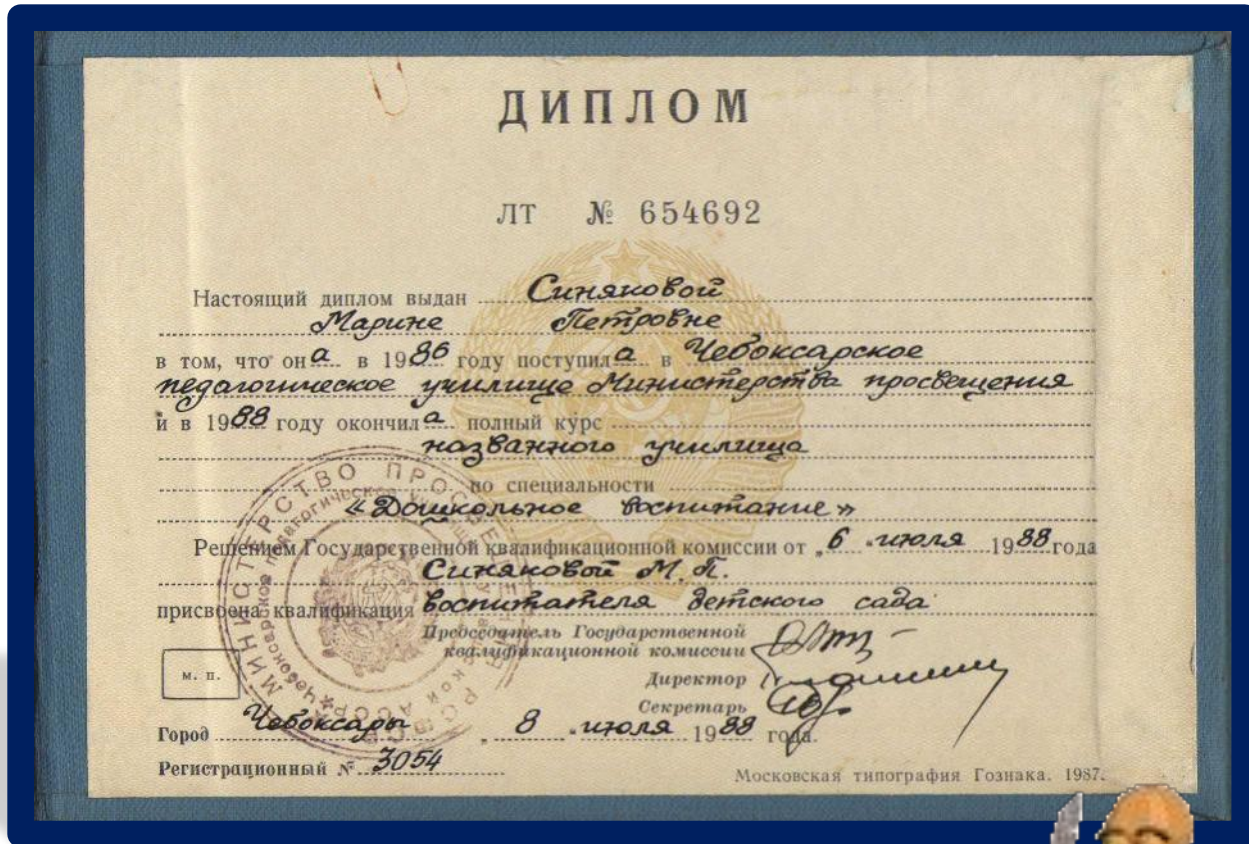 ДИПЛОМ
ЛТ № 654692
Настоящий диплом выдан Синяковой
Марине Петровне
в том, что она в 1986 году поступила в Чебоксарское
педагогическое училище Министерства просвещения
и в 1988 году окончила полный курс
названного училища
по специальности
«Дошкольное воспитание»
Решением Государственной квалификационной комиссии от „6" июля 1988 года
Синяковой М. П.
присвоена квалификация воспитателя детского сада
Председатель Государственной
квалификационной комиссии
Директор
Секретарь
м. п.
Город Чебоксары „8" июля 1988 года.
Регистрационный № 3054
Московская типография Гознака. 1987.
МИНИСТЕРСТВО ПРОСВЕЩЕНИЯ РСФСР
Чебоксарское педагогическое училище